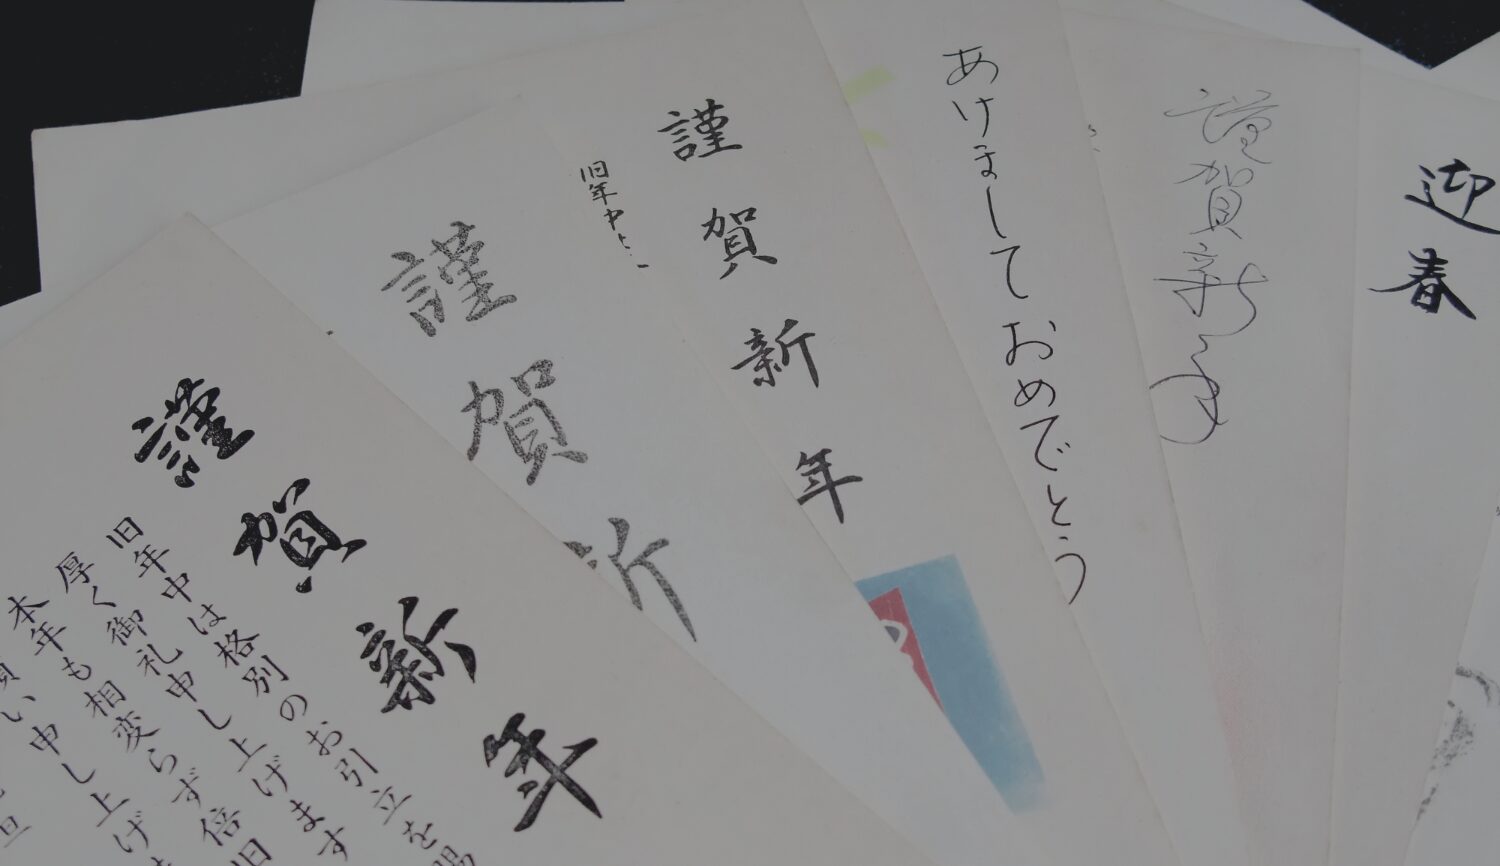 迎春
謹賀新年
あけましておめでとう
謹賀新年
旧年中は
謹賀新
謹賀新年
旧年中は格別のお引立を賜
厚く御礼申し上げます
本年も相変らず倍旧
願い申し上げま
元旦